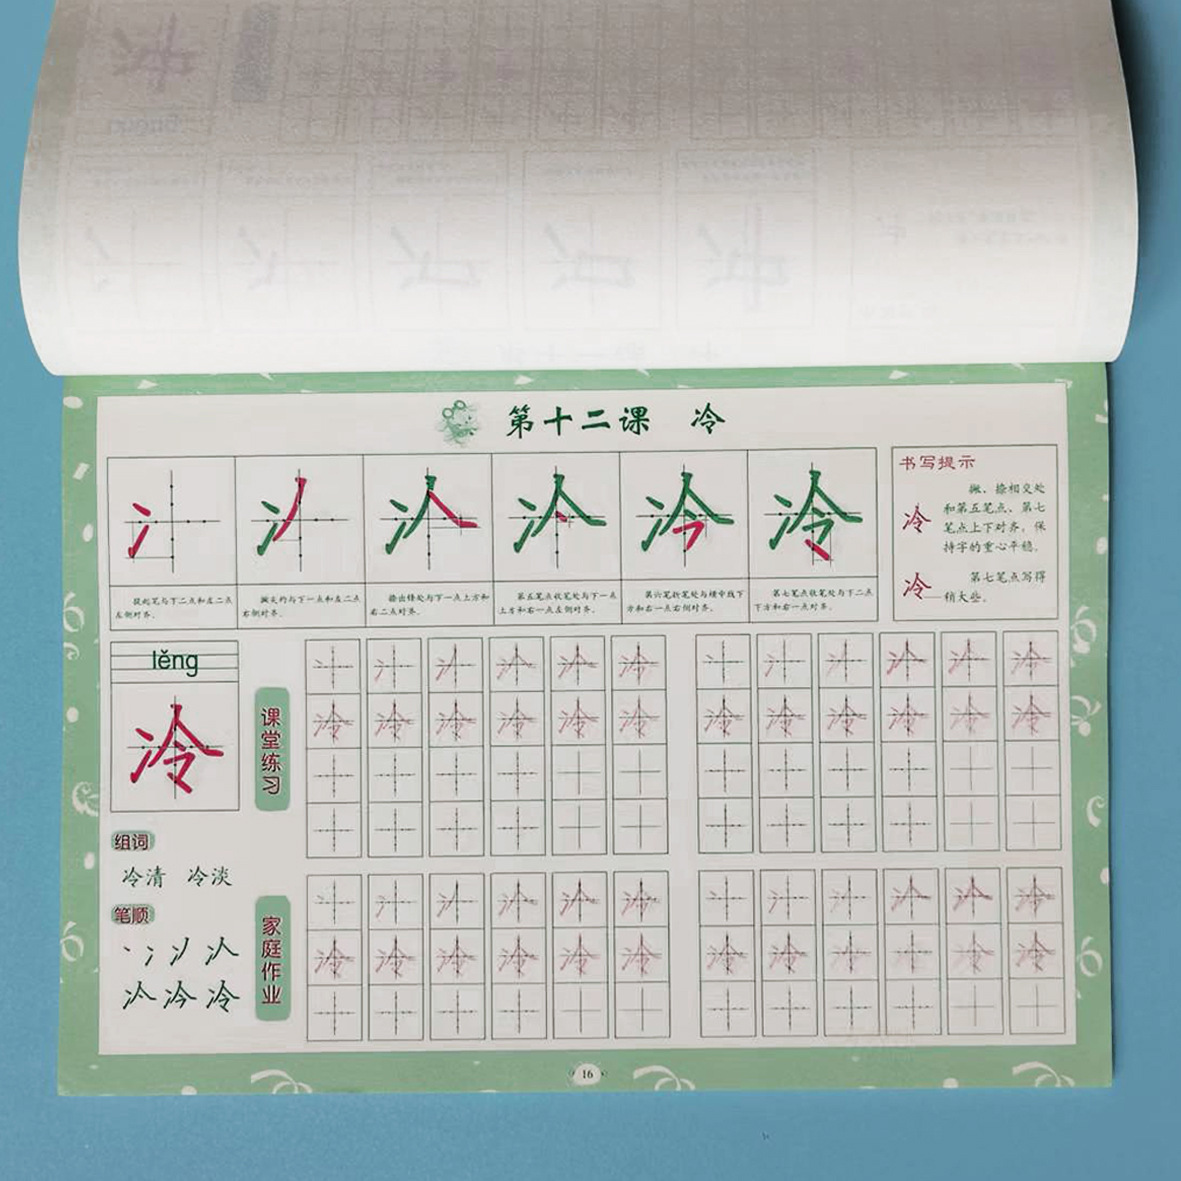 第十二课 冷
提起笔与下二点和左二点
左侧对齐。
撇尖约与下一点和左二点
右侧对齐。
捺出锋处与下一点上方和
右二点对齐。
第五笔点收笔处与下一点
上方和右一点左侧对齐。
第六笔折笔处与横中线下
方和右一点右侧对齐。
第七笔点收笔处与下二点
下方和右一点对齐。
书写提示
冷
撇、捺相交处
和第五笔点、第七
笔点上下对齐，保
持字的重心平稳。
冷
第七笔点写得
稍大些。
lěng
冷
课堂练习
组词
冷清 冷淡
笔顺
冷
家庭作业
16